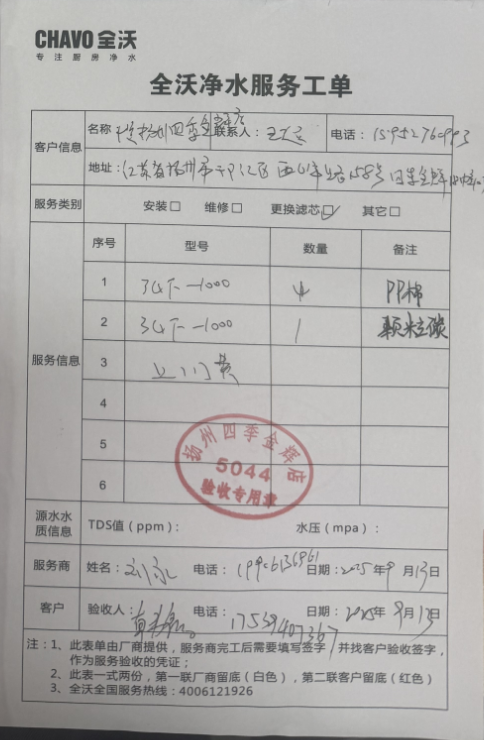 CHAVO全沃
专注厨房净水
全沃净水服务工单
客户信息 名称 扬州四季金辉店 联系人： 王 电话：
地址：江苏省扬州市邗江区 158号
服务类别 安装□ 维修□ 更换滤芯☑ 其它□
服务信息 序号 型号 数量 备注
1 3GF-1000 4 PP棉
2 3GF-1000 1 颗粒碳
3 上门费
4
5
6
扬州四季金辉店
5044
验收专用章
源水水质信息 TDS值（ppm）： 水压（mpa）：
服务商 姓名：刘永 电话：19906136961 日期：2025年9月13日
客户 验收人： 电话：17539407367 日期：2025年9月13日
注：1、此表单由厂商提供，服务商完工后需要填写签字，并找客户验收签字，
作为服务验收的凭证；
2、此表一式两份，第一联厂商留底（白色），第二联客户留底（红色）
3、全沃全国服务热线：4006121926